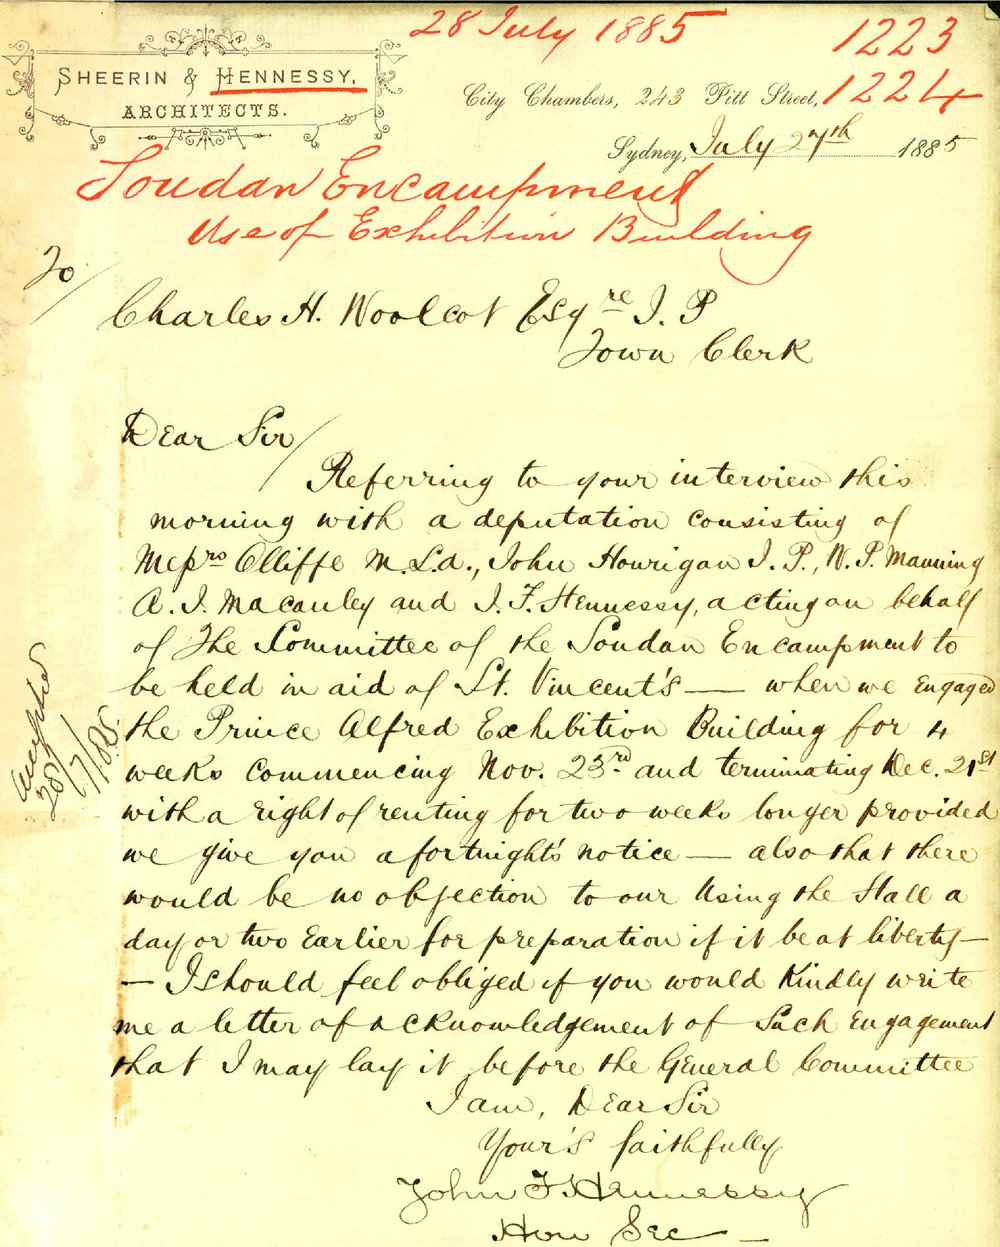 28 July 1885
1223
1224
SHEERIN & HENNESSY,
ARCHITECTS.
City Chambers, 243 Pitt Street,
Sydney, July 27th 1885
Soudan Encampment
Use of Exhibition Building
To/
Charles H. Woolcot Esqre J. P
Town Clerk
Dear Sir/
Referring to your interview this
morning with a deputation consisting of
Messrs Olliffe M.L.A., John Hourigan J. P., W. P. Manning
A. J. Macauley and J. F. Hennessy, acting on behalf
of The Committee of the Soudan Encampment to
be held in aid of St. Vincent's — when we engaged
the Prince Alfred Exhibition Building for 4
weeks commencing Nov. 23rd and terminating Dec. 21st
with a right of renting for two weeks longer provided
we give you a fortnight's notice — also that there
would be no objection to our using the Hall a
day or two Earlier for preparation if it be at liberty —
— I should feel obliged if you would Kindly write
me a letter of acknowledgement of such Engagement
that I may lay it before the General Committee
I am, Dear Sir
Your's faithfully
John F Hennessy
Hon Sec —
28/7/85.